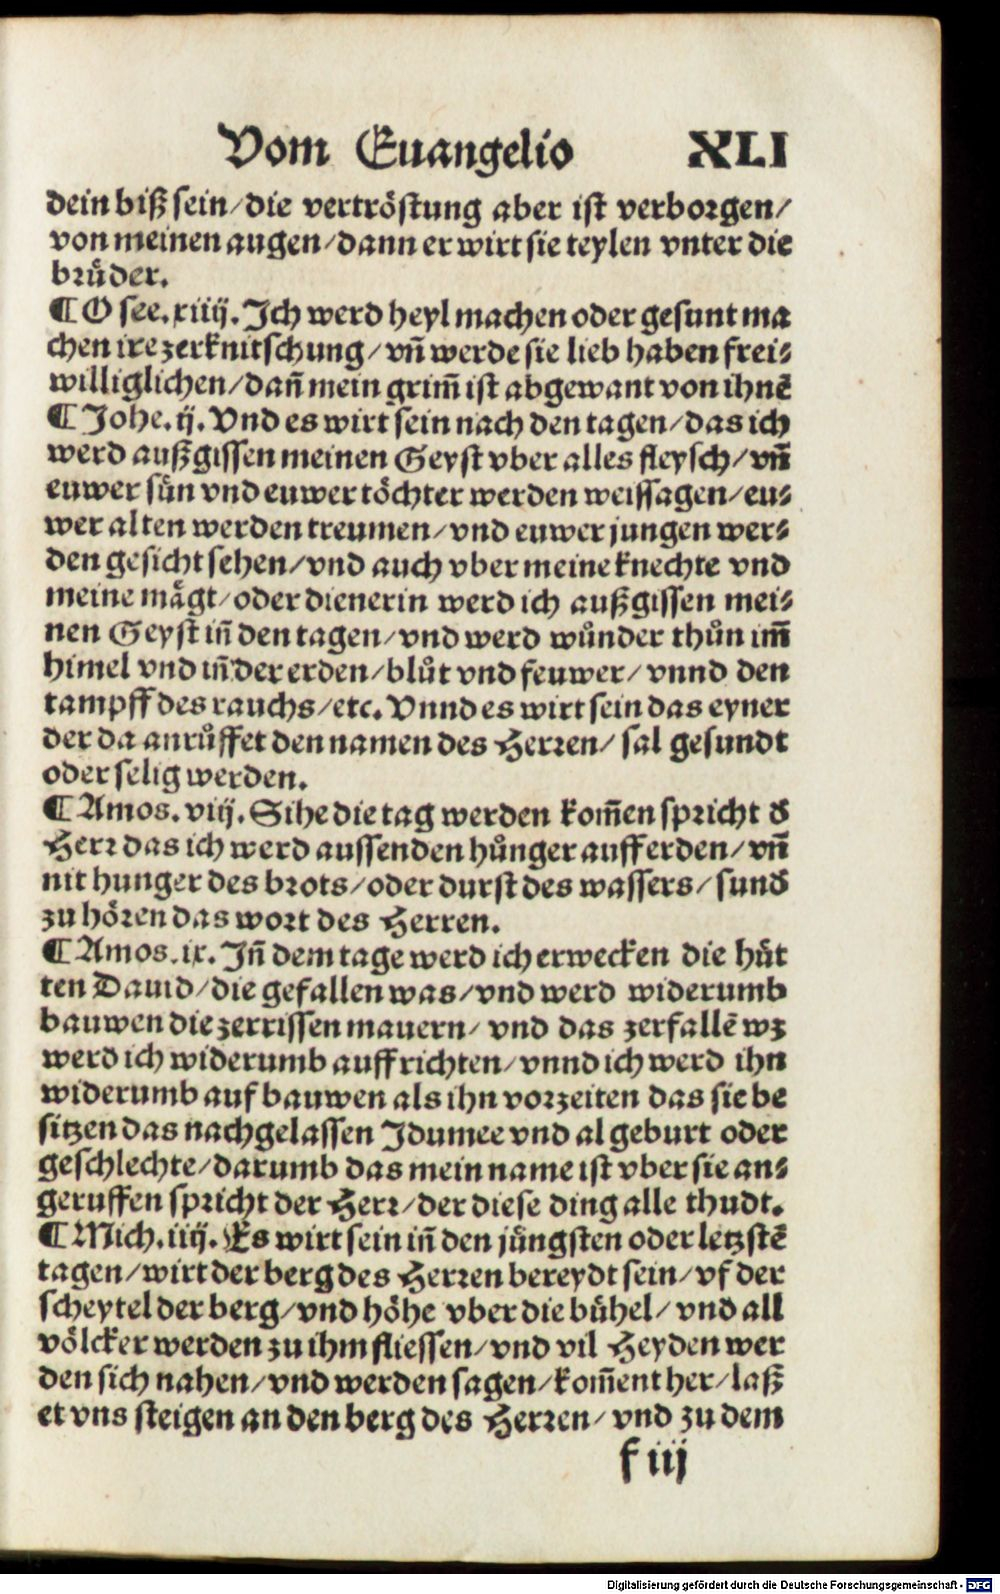 Vom Euangelio XLI
dein biß sein/die vertröstung aber ist verborgen/
von meinen augen/dann er wirt sie teylen vnter die
brüder.
¶ Osee.xiiij. Ich werd heyl machen oder gesunt ma
chen ire zerknitschung/vn̄ werde sie lieb haben frei⸗
williglichen/dan̄ mein grim̄ ist abgewant von ihnē
¶ Johe.ij. Vnd es wirt sein nach den tagen/das ich
werd außgissen meinen Geyst vber alles fleysch/vn̄
euwer sün vnd euwer töchter werden weissagen/eu⸗
wer alten werden treumen/vnd euwer jungen wer⸗
den gesicht sehen/vnd auch vber meine knechte vnd
meine mägt/oder dienerin werd ich außgissen mei⸗
nen Geyst in̄ den tagen/vnd werd wůnder thůn im̄
himel vnd in̄ der erden/blůt vnd feuwer/vnnd den
tampff des rauchs/etc. Vnnd es wirt sein das eyner
der da anrůffet den namen des Herren/sal gesundt
oder selig werden.
¶ Amos.viij. Sihe die tag werden kom̄en spricht d̄
Herr das ich werd aussenden hůnger auff erden/vn̄
nit hunger des brots/oder durst des wassers/sund̄
zu hören das wort des Herren.
¶ Amos.ix. In̄ dem tage werd ich erwecken die hüt
ten Dauid/die gefallen was/vnd werd widerumb
bauwen die zerrissen mauern/vnd das zerfallē wz
werd ich widerumb auffrichten/vnnd ich werd ihn
widerumb aufbauwen als ihn vorzeiten das sie be
sitzen das nachgelassen Idumee vnd al geburt oder
geschlechte/darumb das mein name ist vber sie an⸗
geruffen spricht der Herr/der diese ding alle thudt.
¶ Mich.iiij. Es wirt sein in̄ den jüngsten oder letzstē
tagen/wirt der berg des Herren bereydt sein/vf der
scheytel der berg/vnd höhe vber die bühel/vnd all
völcker werden zu ihm fliessen/vnd vil Heyden wer
den sich nahen/vnd werden sagen/kom̄ent her/laß
et vns steigen an den berg des Herren/vnd zu dem
f iij
Digitalisierung gefördert durch die Deutsche Forschungsgemeinschaft - DFG